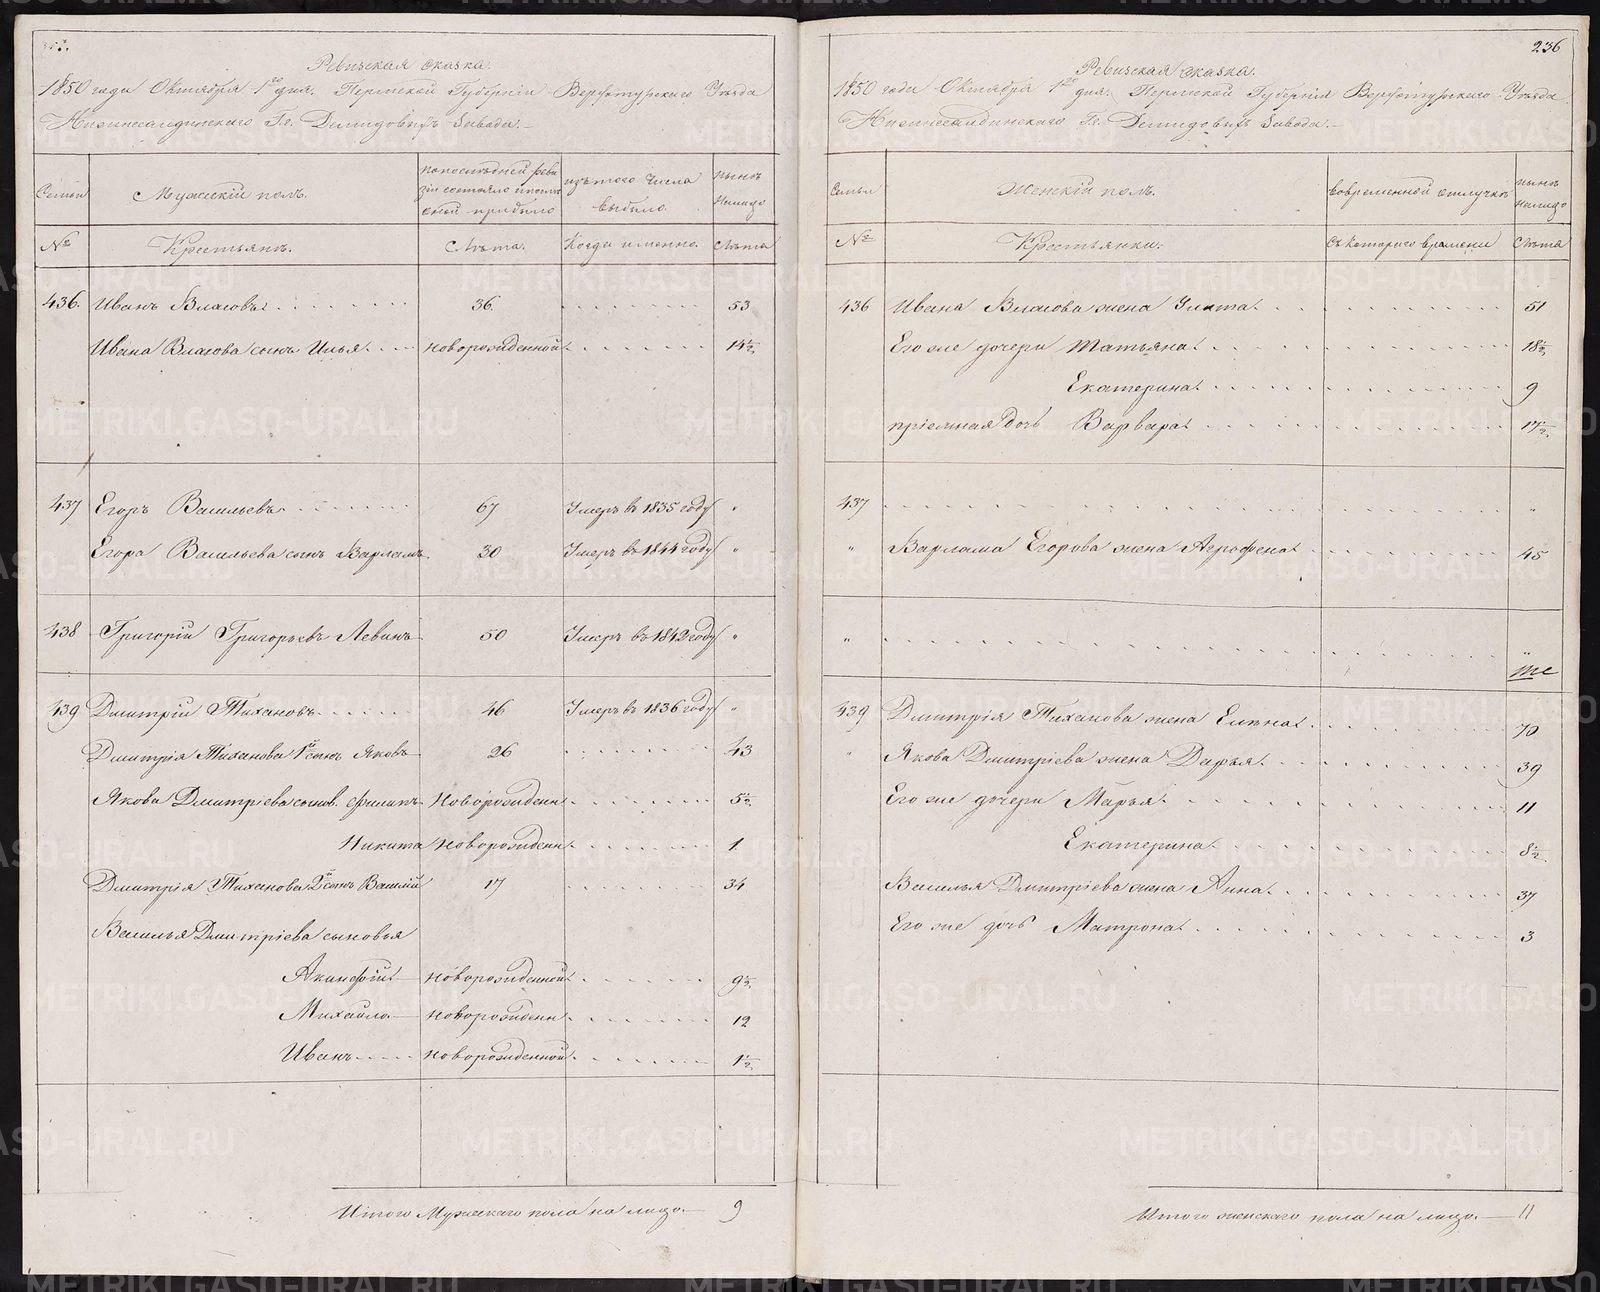 Ревизская сказка.
1850 года Октября 1го дня. Пермской Губерніи Верхотурскаго Уѣзда
Нижнесалдинскаго Гг. Демидовыхъ Завода.
Семьи
Мужескій полъ.
по последней реви
зіи состояло и после
оной прибыло
изъ того числа
выбыло
нынѣ
налицо
№
Крестьянъ.
Лѣта.
Когда именно.
Лѣта
436. Иванъ Власовъ 36. 53
Ивана Власова сынъ Илья новорожденной 14½
437 Егоръ Васильевъ 67 Умеръ въ 1835 году "
Егора Васильева сынъ Варламъ 30 Умеръ въ 1844 году "
438 Григорій Григорьевъ Левинъ 50 Умеръ въ 1842 году "
439 Дмитрій Тихановъ 46 Умеръ въ 1836 году "
Дмитрія Тиханова 1й сынъ Яковъ 26 43
Якова Дмитріева сынов. Филипъ Новорожденн 5½
Никита новорожденн 1
Дмитрія Тиханова 2й сынъ Василій 17 34
Василья Дмитріева сыновья
Акинфій новорожденной 9½
Михайло новорожденн 12
Иванъ новорожденной 1½
Итого Мужескаго пола на лицо 9
236
Ревизская сказка.
1850 года Октября 1го дня. Пермской Губерніи Верхотурскаго Уѣзда
Нижнесалдинскаго Гг. Демидовыхъ Завода.
Семьи
Женскій полъ.
во временной отлучкѣ
нынѣ
налицо
№
Крестьянки.
съ котораго времени
Лѣта
436 Ивана Власова жена Улита 51
Его же дочери Татьяна 18½
Екатерина 9
пріемная дочь Варвара 17½
437 "
" Варлама Егорова жена Агрофена 45
" "
те
439 Дмитрія Тиханова жена Елѣна 70
" Якова Дмитріева жена Дарья 39
Его же дочери Марья 11
Екатерина 8½
Василья Дмитріева жена Анна 37
Его же дочь Матрона 3
Итого женскаго пола на лицо 11
METRIKI.GASO-URAL.RU